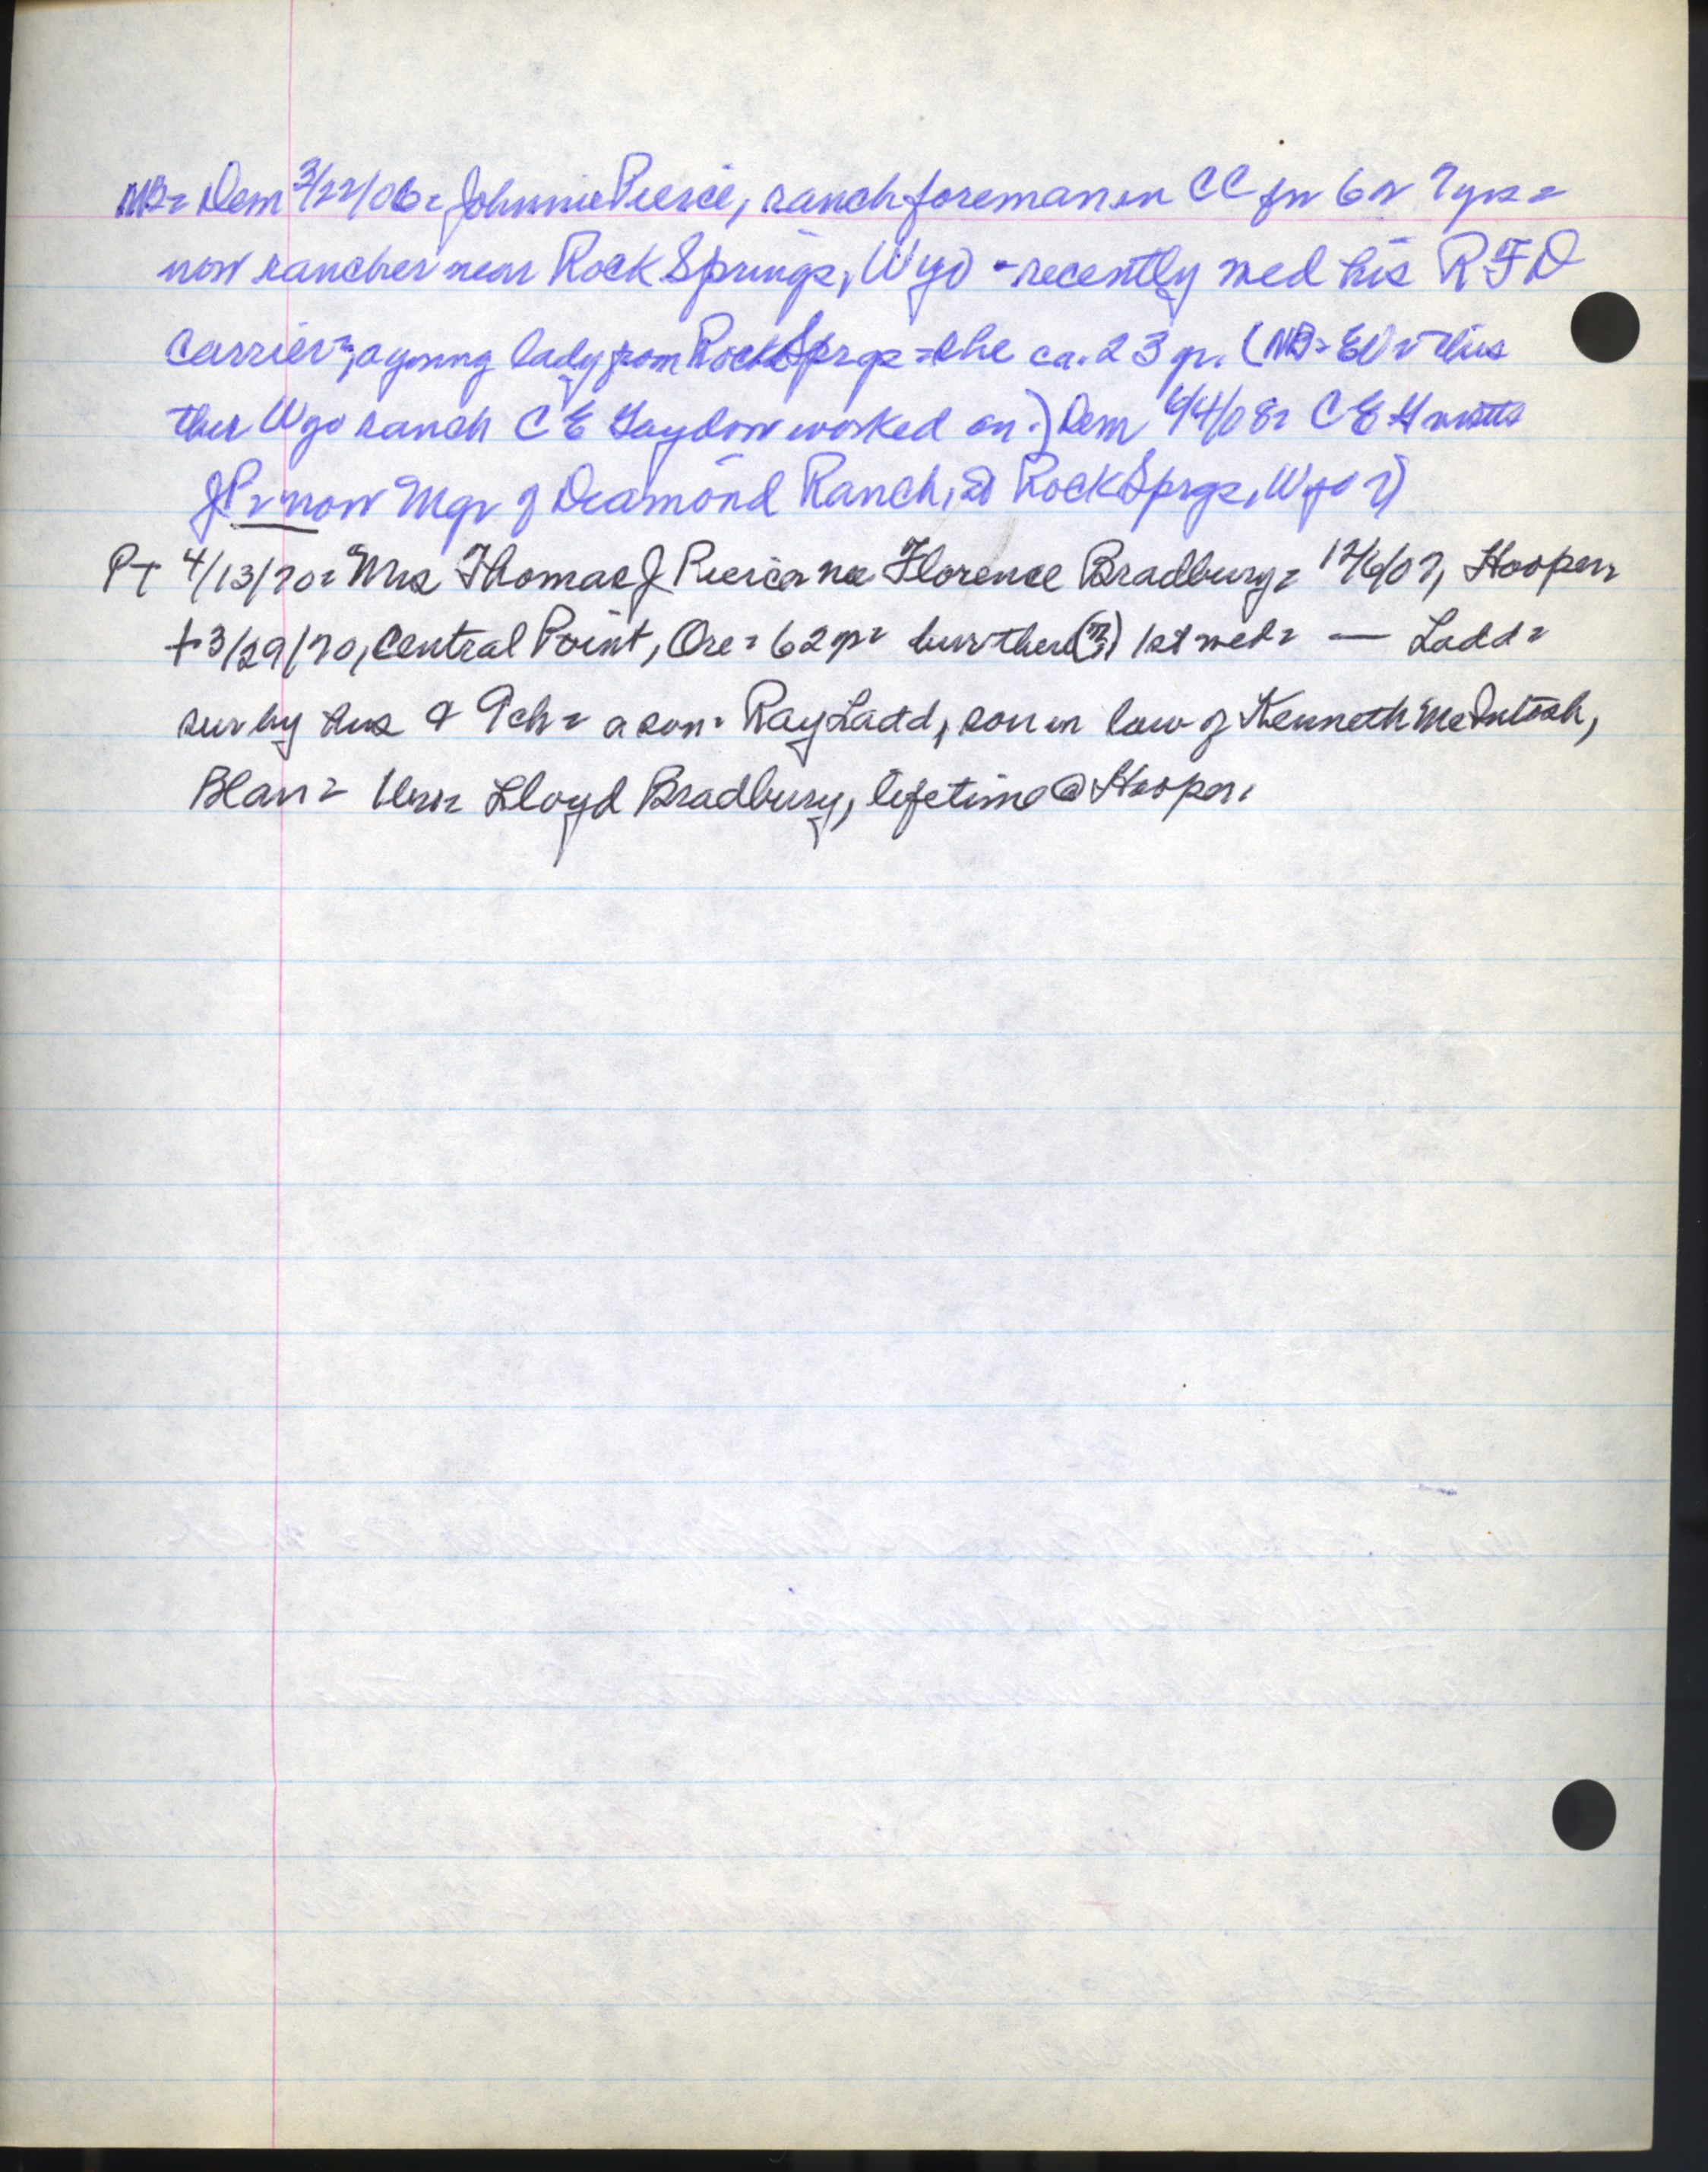 NB= Dem 3/22/06= Johnnie Pierce, ranch foreman in CC for 6 or 7 yrs =
now rancher near Rock Springs, Wyo - recently med his RFD
carrier =, a young lady from Rock Sprgs = she ca. 23 yr. (NB= this
the Wyo ranch C E Gaydon worked on.) Dem 6/4/08= C E G visits
JP = now Mgr of Diamond Ranch, at Rock Sprgs, Wyo =)
PT 4/13/70= Mrs Thomas J Pierce = nee Florence Bradbury = 12/6/07, Hooper =
+ 3/29/70, Central Point, Ore = 62 yr = bur there (?) 1st med = — Ladd =
sur by hus & 9 ch = a son = Ray Ladd, son in law of Kenneth McIntosh,
Blan = Lloyd Bradbury, lifetime @ Hooper.